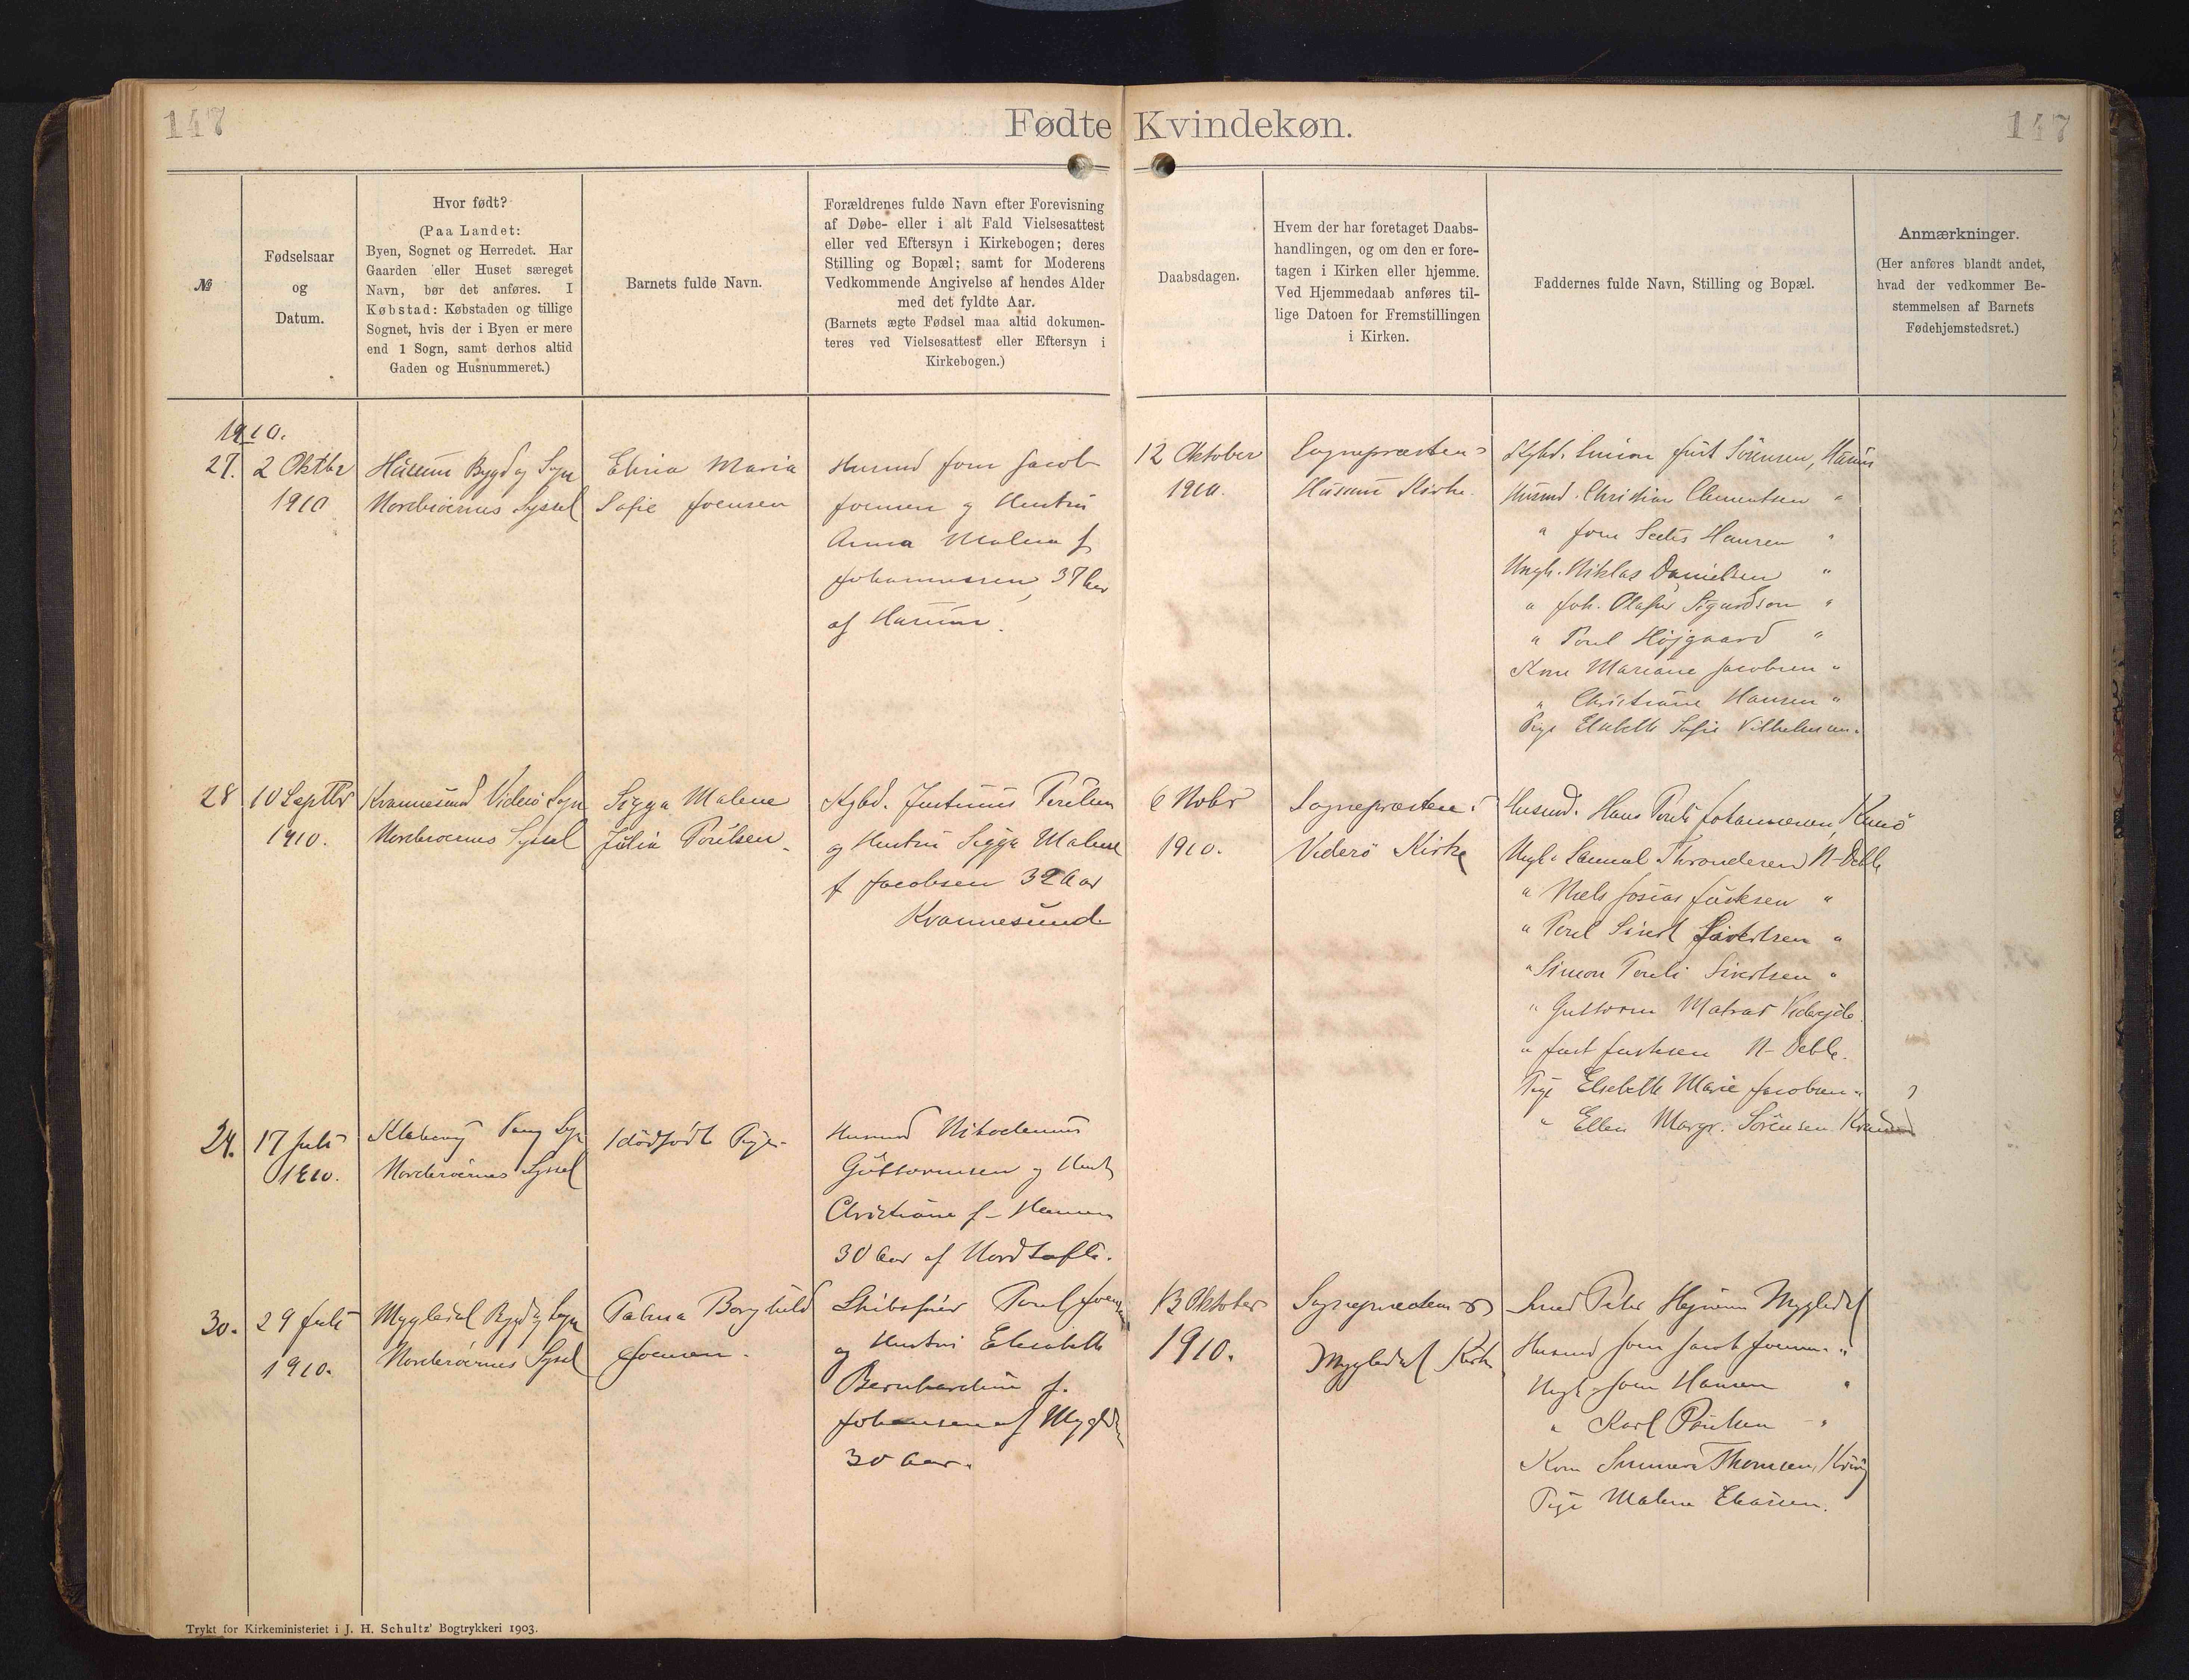 147
Fødte Kvindekøn.
147
№
Fødselsaar
og
Datum.
Hvor født?
(Paa Landet:
Byen, Sognet og Herredet. Har
Gaarden eller Huset særeget
Navn, bør det anføres. I
Købstad: Købstaden og tillige
Sognet, hvis der i Byen er mere
end 1 Sogn, samt derhos altid
Gaden og Husnummeret.)
Barnets fulde Navn.
Forældrenes fulde Navn efter Forevisning
af Døbe- eller i alt Fald Vielsesattest
eller ved Eftersyn i Kirkebogen; deres
Stilling og Bopæl; samt for Moderens
Vedkommende Angivelse af hendes Alder
med det fyldte Aar.
(Barnets ægte Fødsel maa altid dokumen-
teres ved Vielsesattest eller Eftersyn i
Kirkebogen.)
Daabsdagen.
Hvem der har foretaget Daabs-
handlingen, og om den er fore-
tagen i Kirken eller hjemme.
Ved Hjemmedaab anføres til-
lige Datoen for Fremstillingen
i Kirken.
Faddernes fulde Navn, Stilling og Bopæl.
Anmærkninger.
(Her anføres blandt andet,
hvad der vedkommer Be-
stemmelsen af Barnets
Fødehjemstedsret.)
1910.
27.
2 Oktbr
1910
Husum Bygd og Sogn
Norderøernes Syssel
Elina Maria
Sofie Joensen
Husmd Joen Jacob
Joensen og Hustru
Anna Malena f
Johannesen, 37 Aar
af Husum.
12 Oktober
1910.
Sognepræsten
Husum Kirke.
Kgbd. Simon Just Sörensen, Husum
Husmd. Christian Clementsen "
" Joen Hansen "
Ungk. Niklas Danielsen "
" Joh. Olafur Sigurdson "
" Poul Højgaard "
Kone Mariane Jacobsen "
" Christiane Hansen "
Pige Elsebeth Sofie Vilhelmsen "
28
10 Septbr
1910.
Kvannesund Viderö Sogn
Norderøernes Syssel
Sigga Malene
Júlia Poulsen
Kgbd. Justinus Poulsen
og Hustru Sigga Malene
f Jacobsen 32 Aar
Kvannesund
6 Novbr
1910.
Sognepræsten
Viderö Kirke
Husmd. Hans Pauli Johannesen, Kunö
Ungk. Samuel Throndesen N-Deble
" Niels Josias Justesen "
" Poul Sivert Sivertsen "
" Simon Pauli Sivertsen "
" Guttorm Matras Viderejde
" Just Justesen N-Deble.
Pige Elsebeth Marie Jacobsen "
" Ellen Margr. Sörensen
29.
17 Juli
1910.
Vaag Sogn
Norderøernes Syssel
1 dödfödt Pige.
Husmd Nikodemus
Guttormsen og Hust
Christiane f. Hansen
30 Aar af Nordtofte.
30.
29 Juli
1910.
Mygledal Bygd og Sogn
Norderøernes Syssel
Palma Borghild
Joensen.
Skibsfører Poul Joensen
og Hustru Elisabeth
Bernhardine f.
Johansen af Mygledal
30 Aar.
13 Oktober
1910.
Sognepræsten
Mygledal Kirke
Smed Peter Mygledal
Husmd Joen Jacob Joensen "
Ungk. Joen Hansen "
" Karl Poulsen "
Kone Sunneva Thomsen,
Pige Malene Eliasen.
Trykt for Kirkeministeriet i J. H. Schultz' Bogtrykkeri 1903.